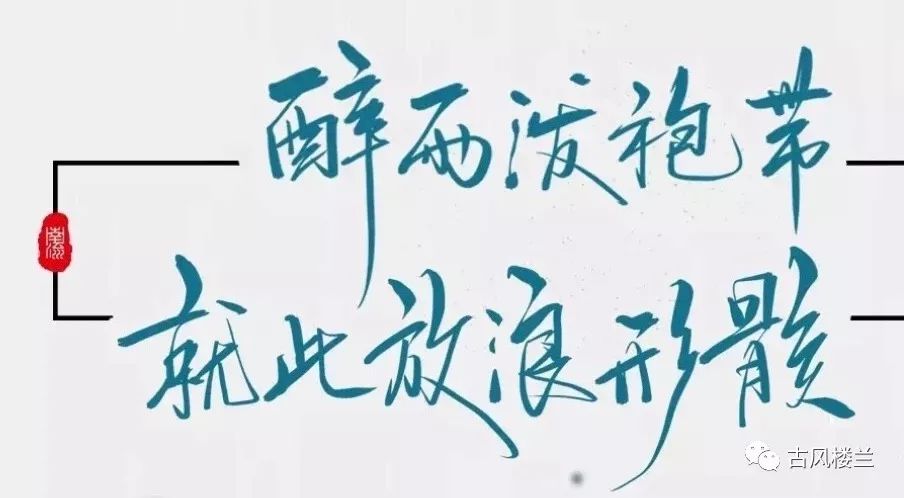 醉而泼袍带
就此放浪形骸
古风楼兰